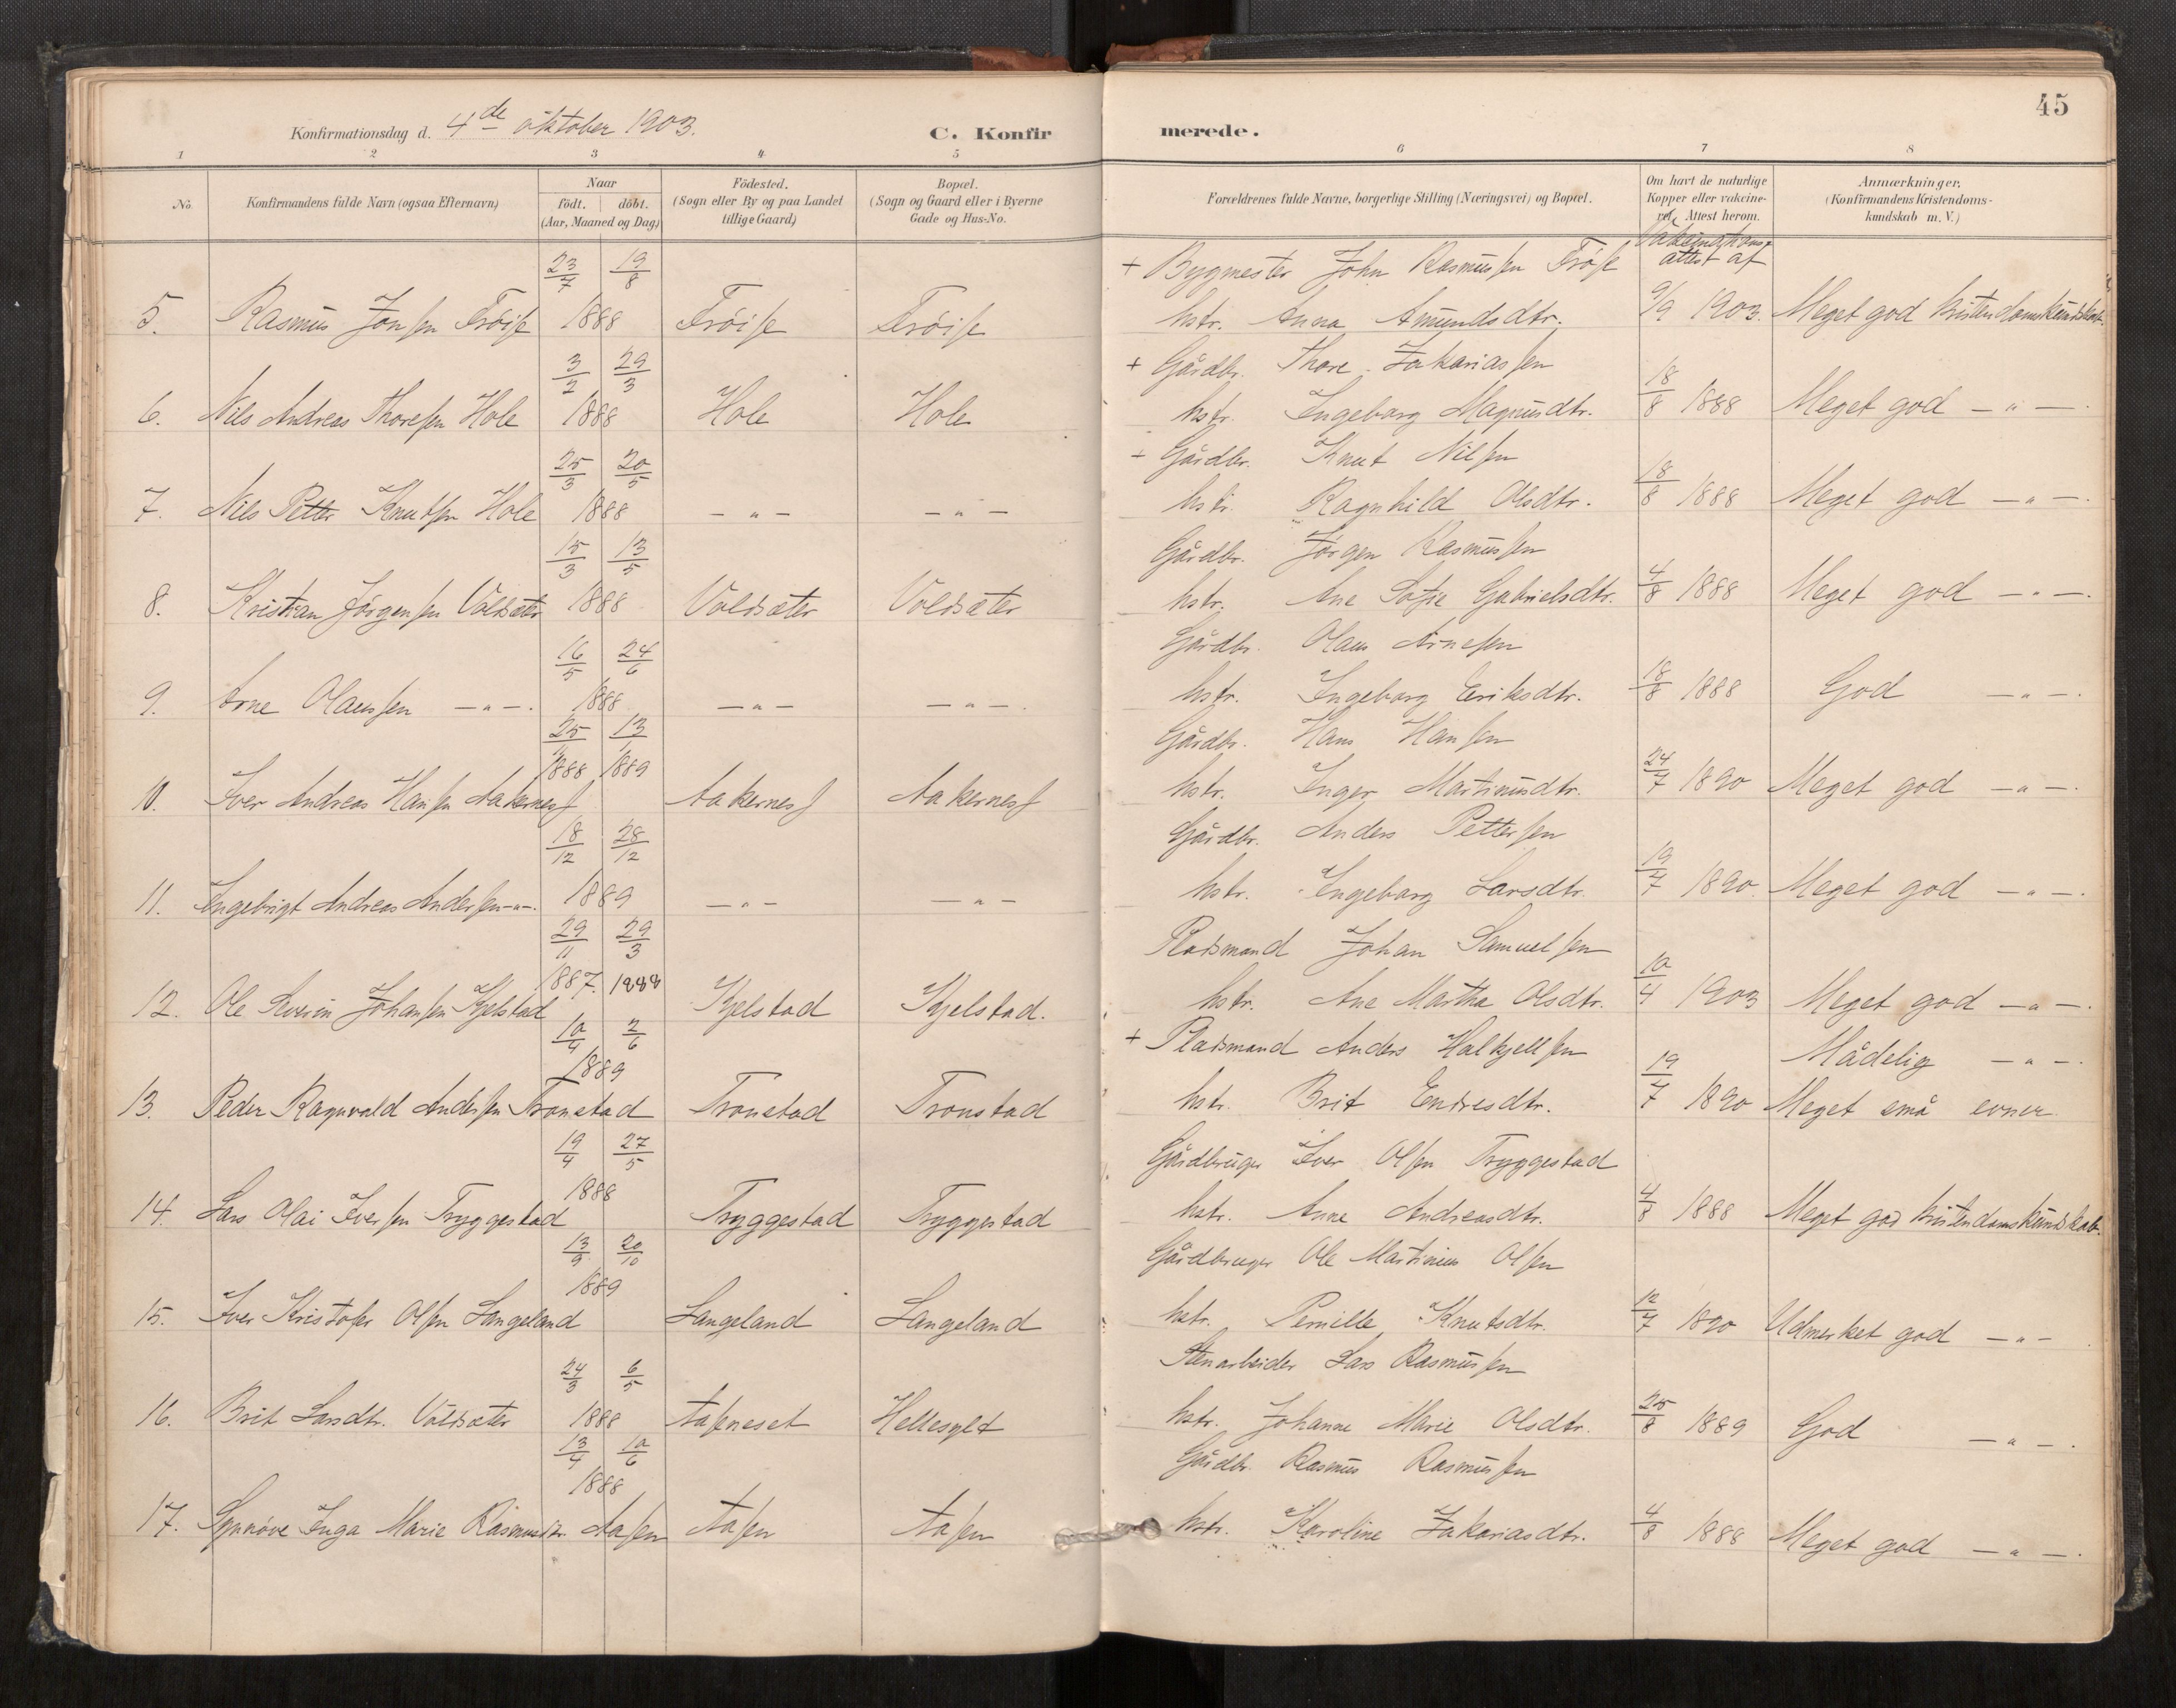 45
Konfirmationsdag d. 4de oktober 1903. C. Konfirmerede.
1 2 3 4 5 6 7 8
No. Konfirmandens fulde Navn (ogsaa Efternavn) Naar födt. döbt. (Aar, Maaned og Dag) Födested. (Sogn eller By og paa Landet tillige Gaard) Bopæl. (Sogn og Gaard eller i Byerne Gade og Hus-No. Forældrenes fulde Navne, borgerlige Stilling (Næringsvei) og Bopæl. Om havt de naturlige Kopper eller vakcineret. Attest herom. Anmærkninger. (Konfirmandens Kristendomskundskab m. V.)
23/7 19/8 + Bygmester John Rasmussen Tröise Vaksinations attest af
5. Rasmus Jonsen Tröise 1888 Tröise Tröise hstr. Anna Amundsdtr. 9/9 1903. Meget god kristendomskundskab.
3/2 29/3 + Gårdbr. Thore Zakariassen
6. Nils Andreas Thoresen Hole 1888 Hole Hole hstr. Ingeborg Magnusdtr. 18/8 1888 Meget god — " —.
25/3 20/5 + Gårdbr. Knut Nilsen
7. Nils Petter Knutsen Hole 1888 — " — — " — hstr. Ragnhild Olsdtr. 18/8 1888 Meget god — " —.
15/3 13/5 Gårdbr. Jörgen Rasmussen
8. Kristian Jörgensen Voldsæter 1888 Voldsæter Voldsæter hstr. Ane Sofie Gabrielsdtr. 4/8 1888 Meget god — " —.
16/5 24/6 Gårdbr. Olaus Arnesen
9. Arne Olaussen — " —. 1888 — " — — " —. hstr. Ingeborg Eriksdtr. 18/8 1888 God — " —.
25 13 Gårdbr. Hans Hansen
1888 1889
10. Iver Andreas Hansen Aakerness Aakerness Aakerness hstr. Inger Martinusdtr. 24/7 1890 Meget god — " —.
18/12 28/12 Gårdbr. Anders Pettersen
11. Ingebrigt Andreas Andersen — " —. 1889 — " — — " — hstr. Ingeborg Larsdtr. 19/7 1890. Meget god — " —.
29/11 29/3 Pladsmand Johan Samuelsen
1887. 1888
12. Ole Severin Johansen Kjelstad Kjelstad Kjelstad. hstr. Ane Martha Olsdtr. 10/4 1903 Meget god — " —.
10/4 2/6 + Pladsmand Anders Halkjellsen Mådelig — " —.
1889
13. Peder Ragnvald Andersen Tronstad Tronstad Tronstad hstr. Brit Endresdtr. 19/7 1890 Meget små evner
19/4 27/5 Gårdbruger Iver Olsen Tryggestad
1888
14. Lars Olai Iversen Tryggestad Tryggestad Tryggestad hstr. Anne Andreasdtr. 4/8 1888 Meget god kristendomskundskab.
13/9 20/10 Gårdbruger Ole Martinius Olsen
1889
15. Iver Kristofer Olsen Langeland Langeland Langeland hstr. Pernille Knutsdtr. 12/7 1890 Udmerket god — " —
24/3 6/5 Stenarbeider Lars Rasmussen
16. Brit Larsdtr. Voldsæter 1888 Aaseneset Hellesylt hstr. Johanne Marie Olsdtr. 25/8 1889 God — " —.
13/4 10/6 Gårdbr. Rasmus Rasmussen
1888
17. Synnöve Inga Marie Rasmusdtr. Aasen Aasen Aasen hstr. Karoline Zakariasdtr. 4/8 1888 Meget god — " —.